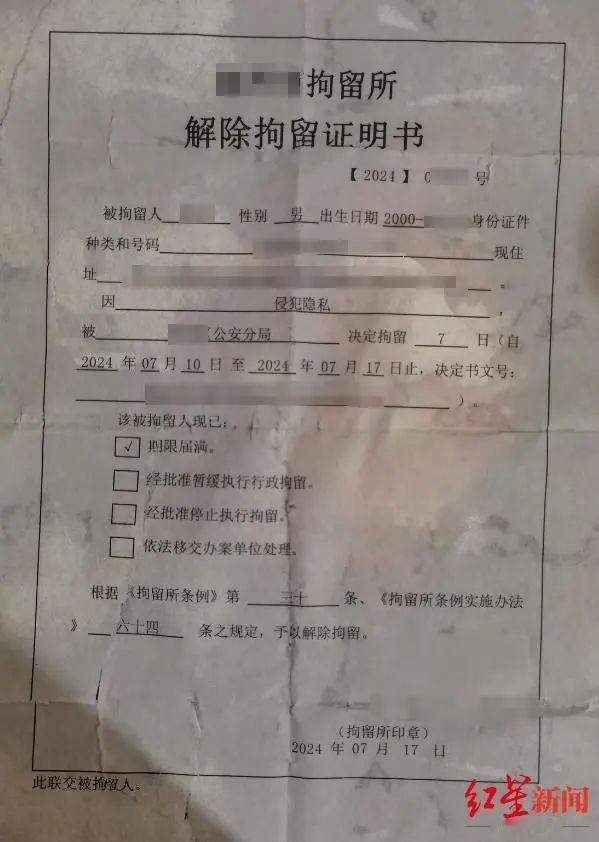 拘留所
解除拘留证明书
【2024】 号
被拘留人 性别 男 出生日期 2000- 身份证件
种类和号码 现住
址 。
因 侵犯隐私 ,
被 公安分局 决定拘留 7 日(自
2024 年 07 月 10 日 至 2024 年 07 月 17 日止,决定书文号:
)。
该被拘留人现已:
√ 期限届满。
经批准暂缓执行行政拘留。
经批准停止执行拘留。
依法移交办案单位处理。
根据《拘留所条例》第 三十 条、《拘留所条例实施办法
》 六十四 条之规定,予以解除拘留。
(拘留所印章)
2024 年 07 月 17 日
此联交被拘留人。
红星新闻